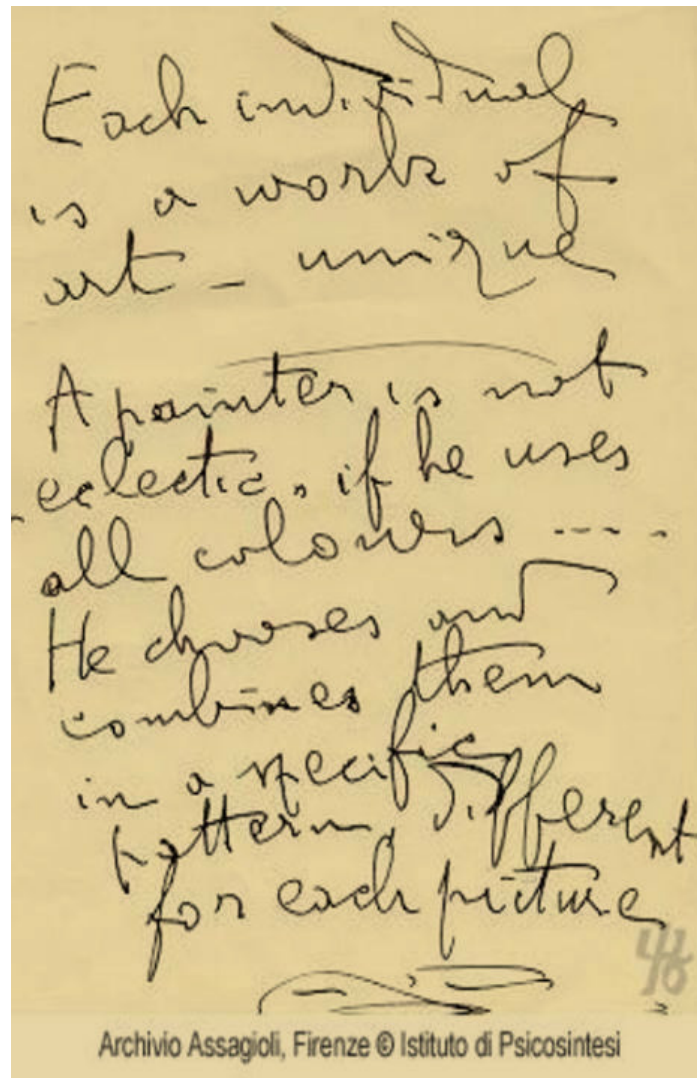 Each individual
is a work of
art – unique
A painter is not
eclectic, if he uses
all colours ----
He chooses and
combines them
in a specific
pattern, different
for each picture
Archivio Assagioli, Firenze © Istituto di Psicosintesi